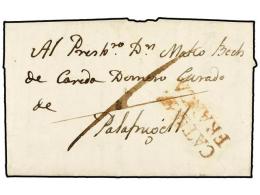 Al Presb.ro D.n Mateo Bech
de Careda Domero Curado
de
Palafrugell
CATAL
FRANCA